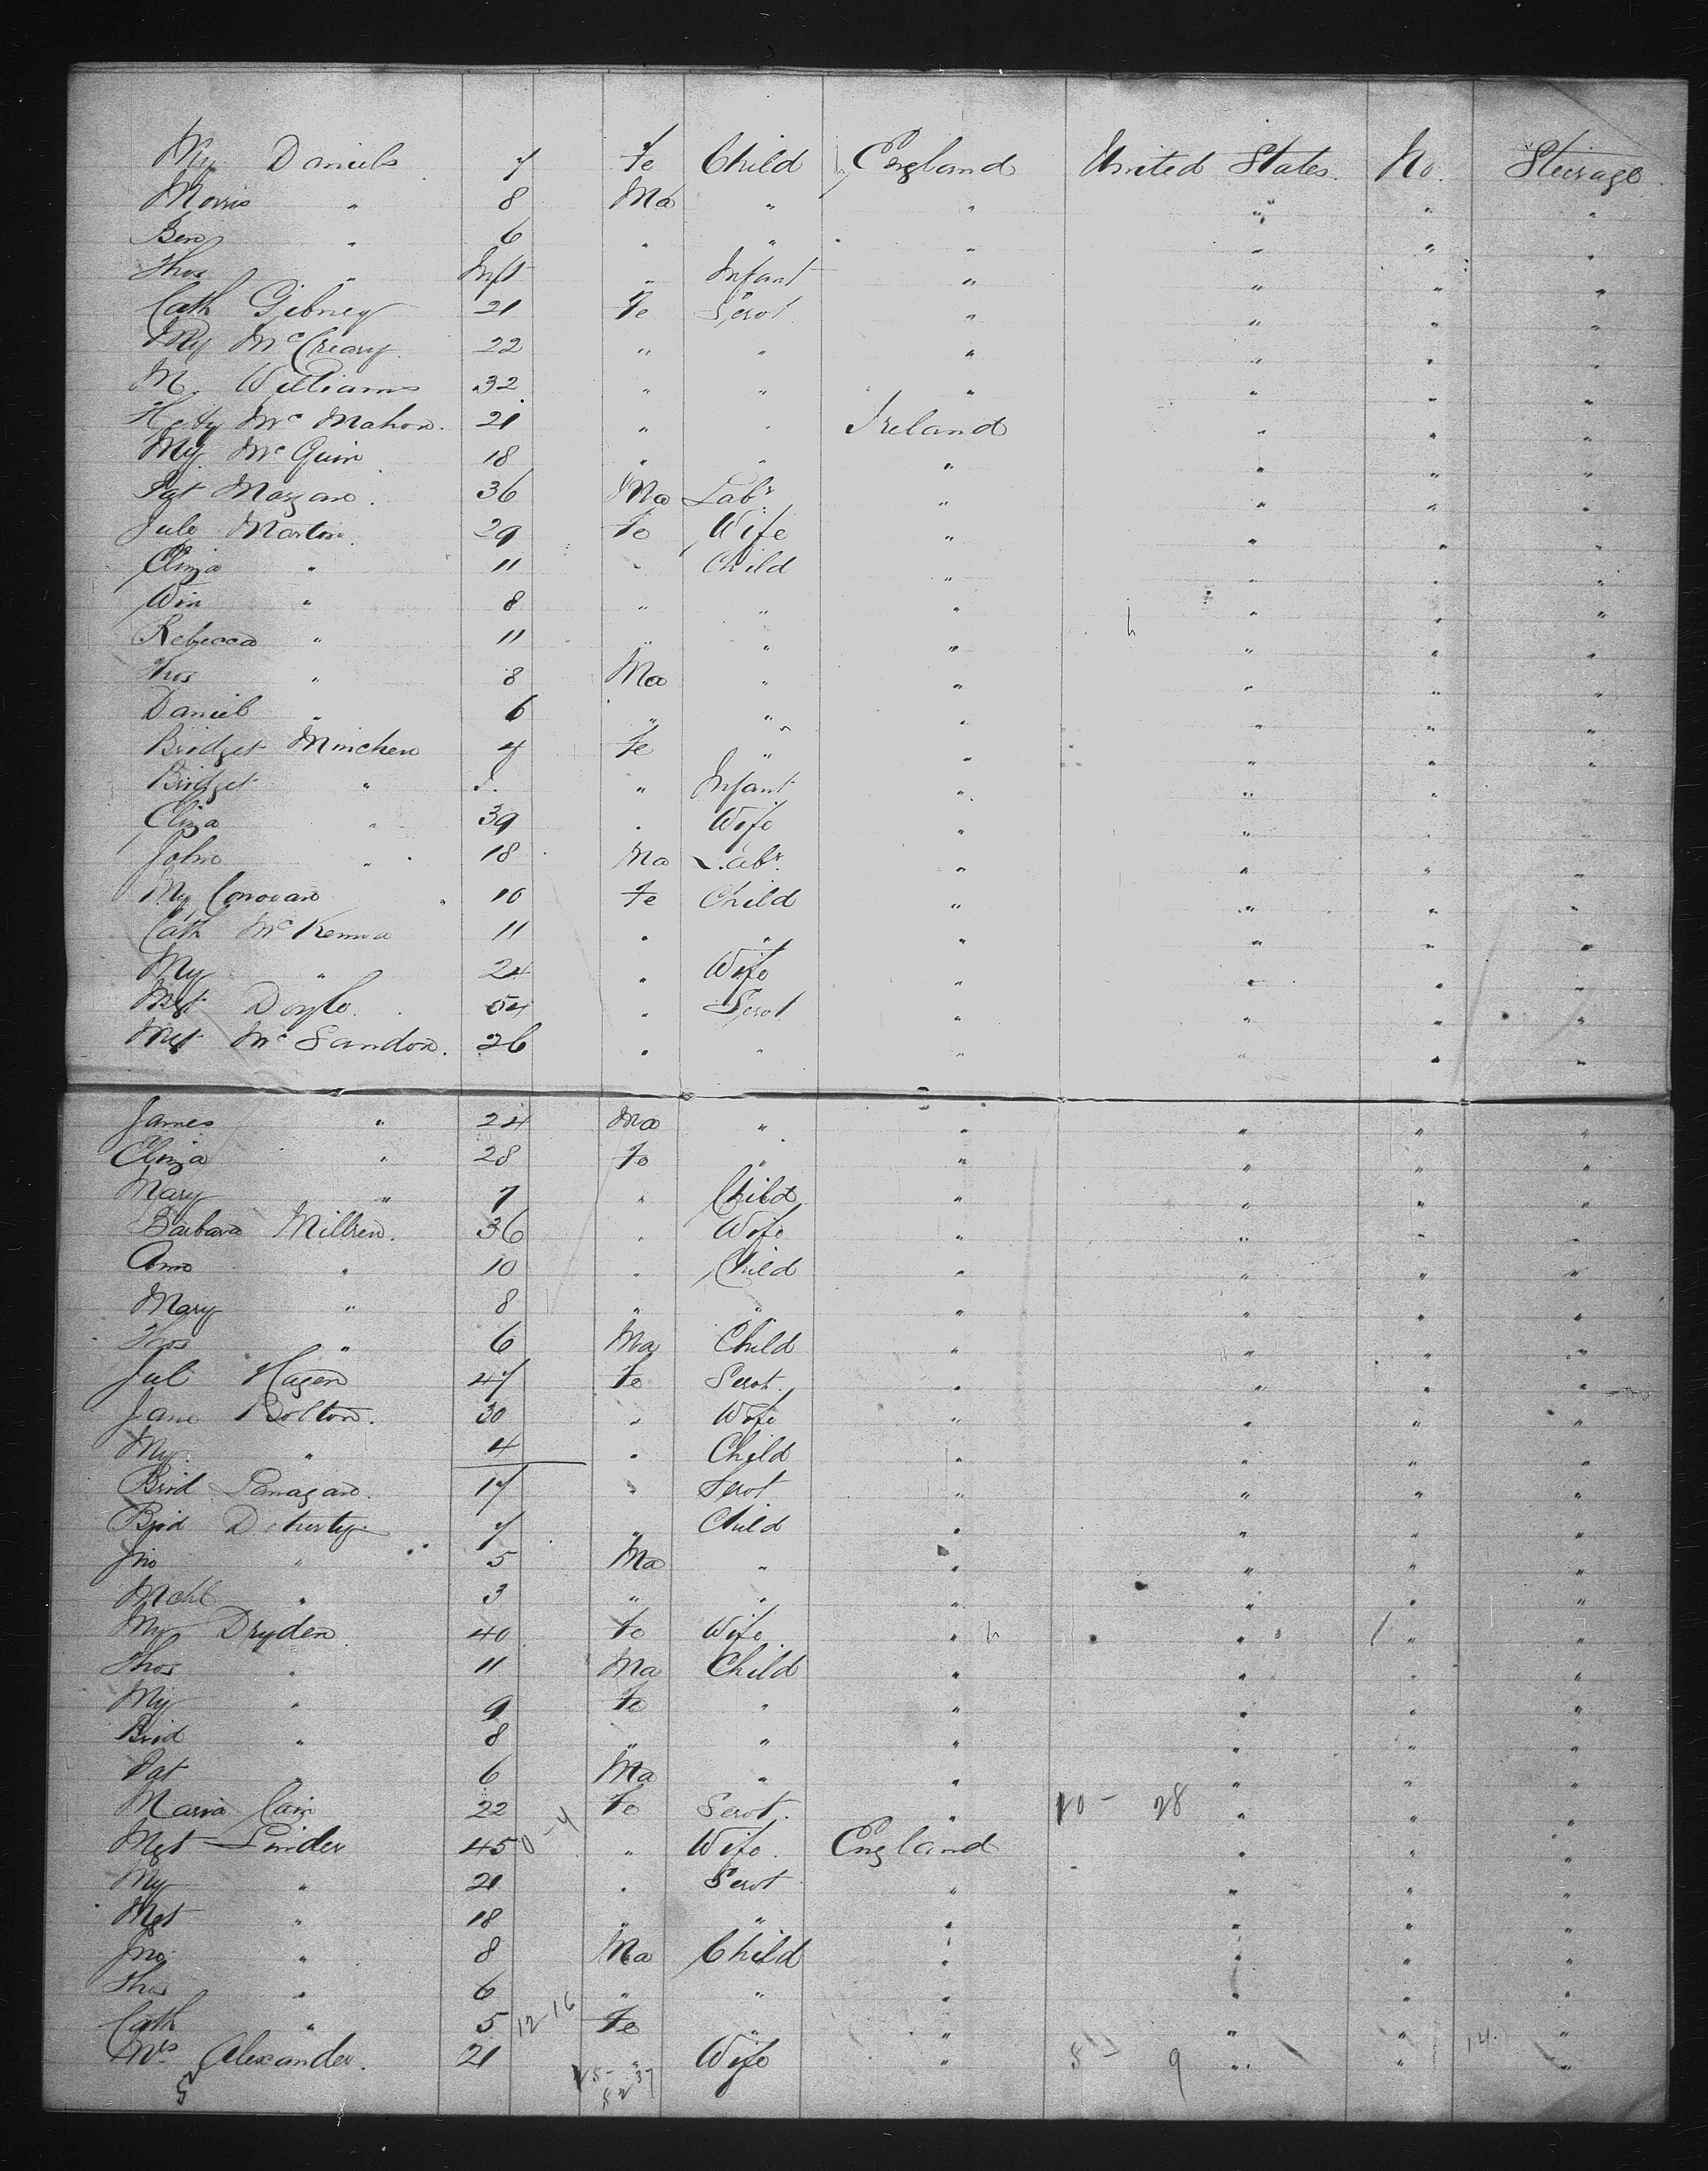 My Daniels 7 Fe Child England United States No. Steerage
Morris " 8 Ma " " " " "
Ben " 6 " " " " " "
Thos " Inft " Infant " " " "
Cath Gibney 21 Fe Servt " " " "
My McCreary 22 " " " " " "
M. Williams 32 " " " " " "
McMahon 21 " " Ireland " " "
My McGuin 18 " " " " " "
Pat 36 Ma Labr " " " "
Jule Martin 29 Fe Wife " " " "
Eliza " 11 " Child " " " "
Win " 8 " " " " " "
Rebecca " 11 " " " " " "
Thos " 8 Ma " " " " "
Daniel " 6 " " " " " "
Bridget Minchen 4 Fe " " " " "
Bridget " I. " Infant " " " "
Eliza " 39 " Wife " " " "
John " 18 Ma Labr " " " "
My Conovan 10 Fe Child " " " "
Cath McKenna 11 " " " " " "
My " 24 " Wife " " " "
Mgt Doyle 54 " Servt " " " "
Mgt McSandon 26 " " " " " "
James " 24 Ma " " " " "
Eliza " 28 Fe " " " " "
Mary " 7 " Child " " " "
Barbara Millren 36 " Wife " " " "
Ann " 10 " Child " " " "
Mary " 8 " " " " " "
Thos " 6 Ma Child " " " "
Jul Hagen 47 Fe Servt " " " "
Jane Bolton 30 " Wife " " " "
My " 4 " Child " " " "
Brid Lanagan 17 " Servt " " " "
Brid Doherty 7 " Child " " " "
Jno " 5 Ma " " " " "
Mchl " 3 " " " " " "
My Dryden 40 Fe Wife " " " "
Thos " 11 Ma Child " " " "
My " 9 Fe " " " " "
Brid " 8 " " " " " "
Pat " 6 Ma " " " " "
Maria Cain 22 Fe Servt " 20 - 28 " " "
Mgt Linder 45 0-4 " Wife England " " "
My " 21 " Servt " " " "
Mgt " 18 " " " " " "
Jno " 8 Ma Child " " " "
Thos " 6 " " " " " "
Cath " 5 12-16 Fe " " " " "
Mrs Alexander 21 " Wife " 9 " " 14 "
5